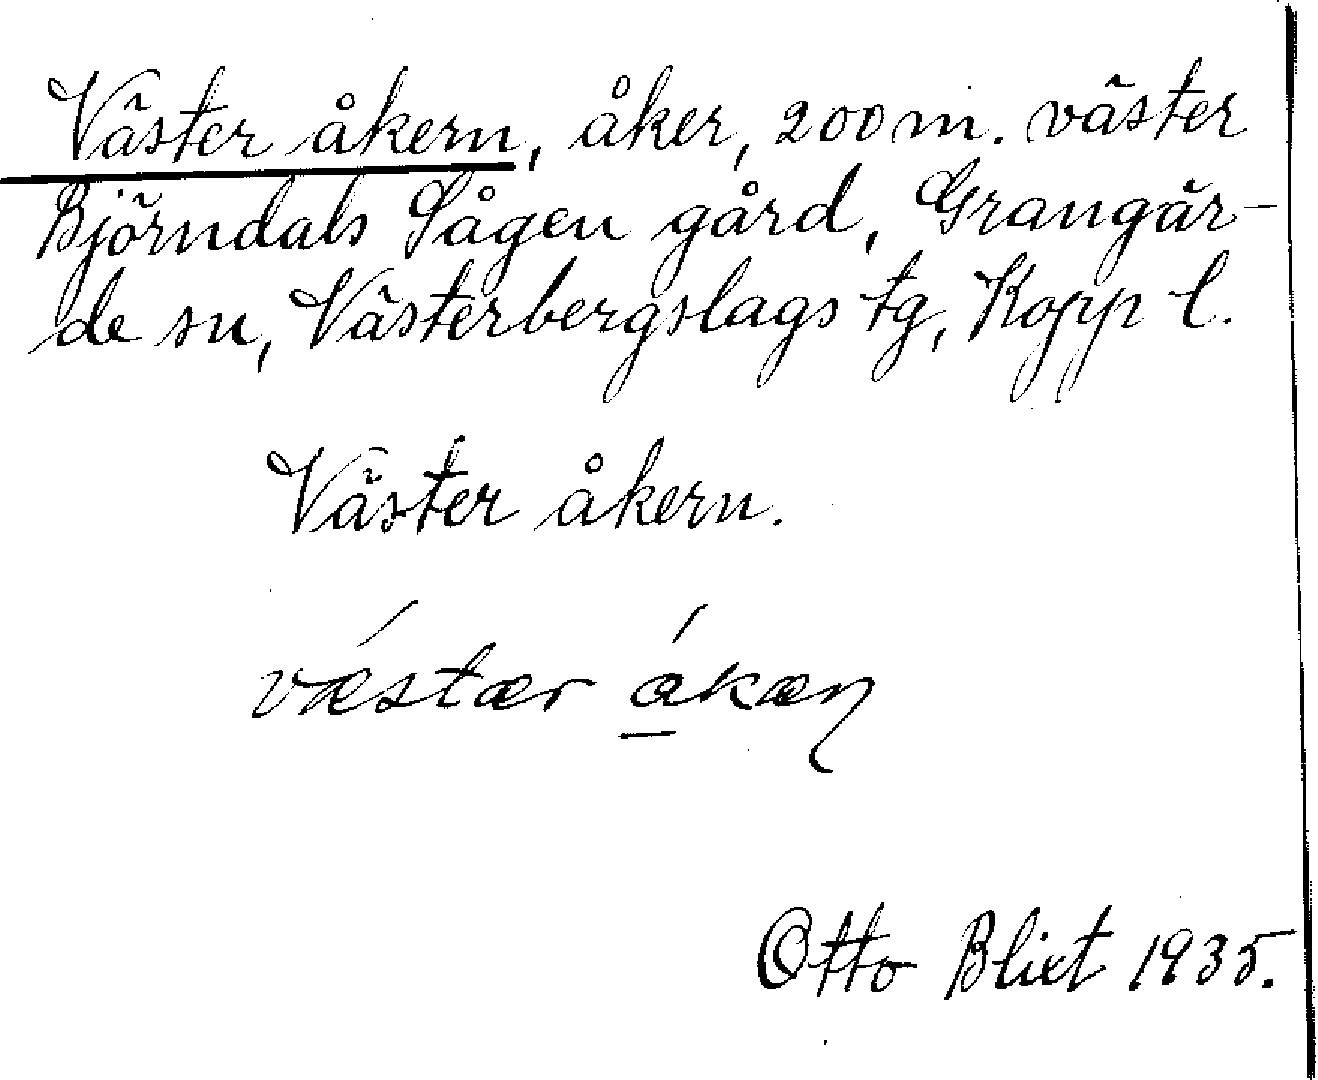 Väster åkern, åker, 200 m. väster
Björndals Sågen gård, Grangär-
de sn, Västerbergslags tg, Kopp l.
Väster åkern.
vǽstær á̱kæɳ
Otto Blixt 1935.